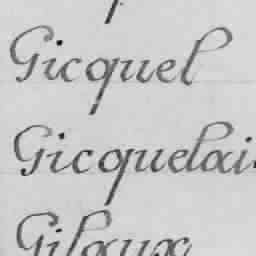 Gicquel
Gicquelai
Gilaux